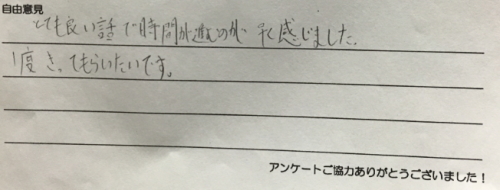 自由意見
とても良い話で時間が進むのが早く感じました。
1度きってもらいたいです。
アンケートご協力ありがとうございました！